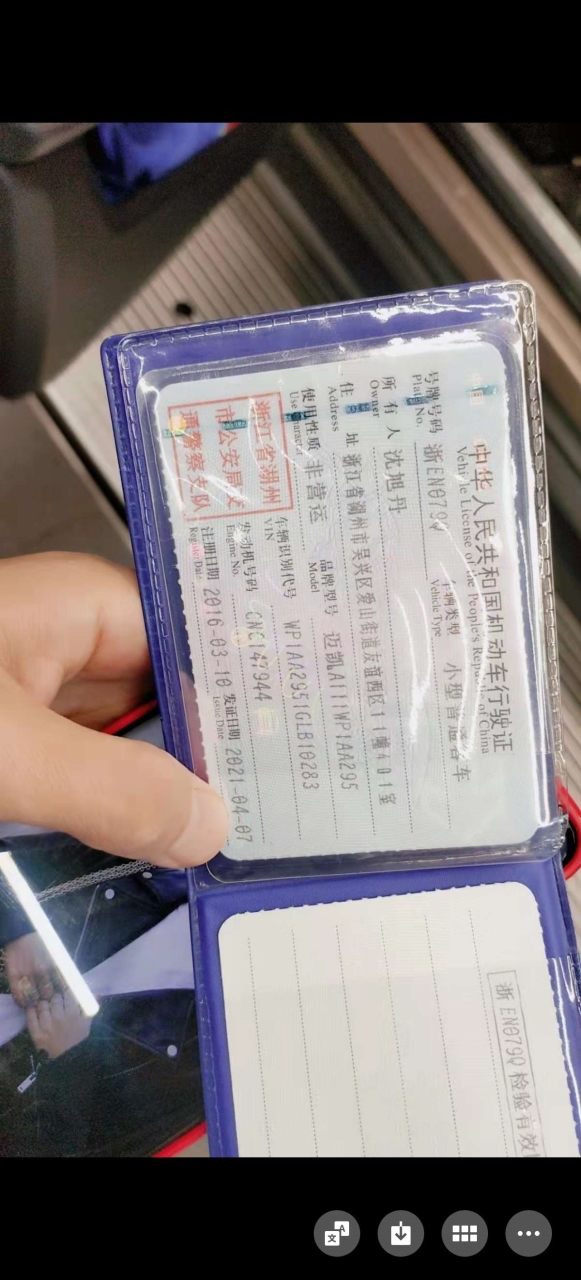 中华人民共和国机动车行驶证
Vehicle License of the People's Republic of China
号牌号码 浙EN079Q 车辆类型 小型普通客车
Plate No. Vehicle Type
所有人 沈旭丹
Owner
住址 浙江省湖州市吴兴区爱山街道友谊西区11幢401室
Address
使用性质 非营运 品牌型号 迈凯A111WP1AA295
Use Character Model
浙江省湖州
市公安局交
通警察支队
车辆识别代号 WP1AA2951GLB10283
VIN
发动机号码 CNC147944
Engine No.
注册日期 2016-03-10 发证日期 2021-04-07
Register Date Issue Date
浙EN079Q 检验有效